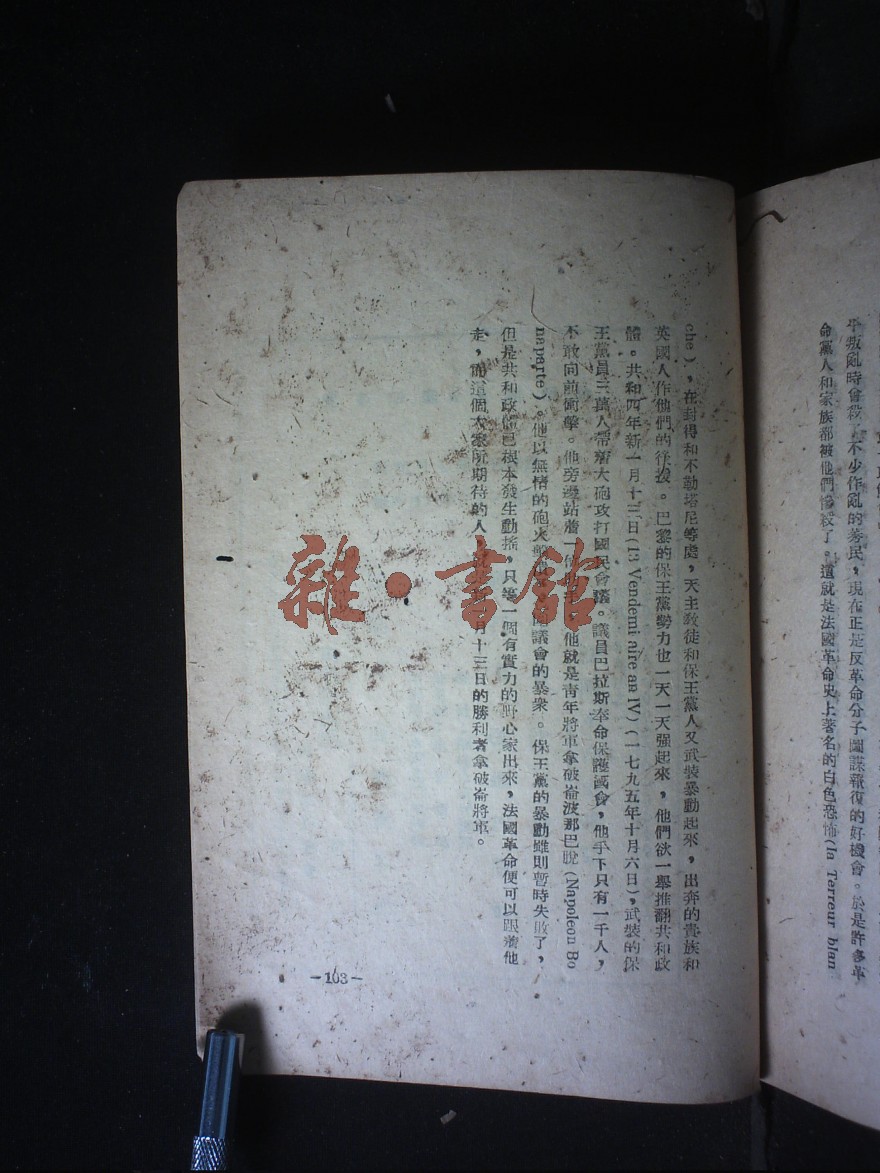 平叛亂時會殺了不少作亂的莠民，現在正是反革命分子圖謀報復的好機會。於是許多革
命黨人和家族都被他們慘殺了。這就是法國革命史上著名的白色恐怖(la Terreur blan
che)，在封得和不勒塔尼等處，天主教徒和保王黨人又武裝暴動起來，出奔的貴族和
英國人作他們的後援。巴黎的保王黨勢力也一天一天强起來，他們欲一舉推翻共和政
體。共和四年新一月十三日(13 Vendemiaire an IV)(一七九五年十月六日)，武裝的保
王黨員三萬人帶着大砲攻打國民會議。議員巴拉斯奉命保護議會，他手下只有一千人，
不敢向前衝擊。他旁邊站着一個，他就是青年將軍拿破崙波那巴脫(Napoleon Bo
naparte)。他以無情的砲火議會的暴衆。保王黨的暴動雖則暫時失敗了，
但是共和政體已根本發生動搖，只等一個有實力的野心家出來，法國革命便可以跟着他
走，而這個大家所期待的人月十三日的勝利者拿破崙將軍。
—103—
雜·書館